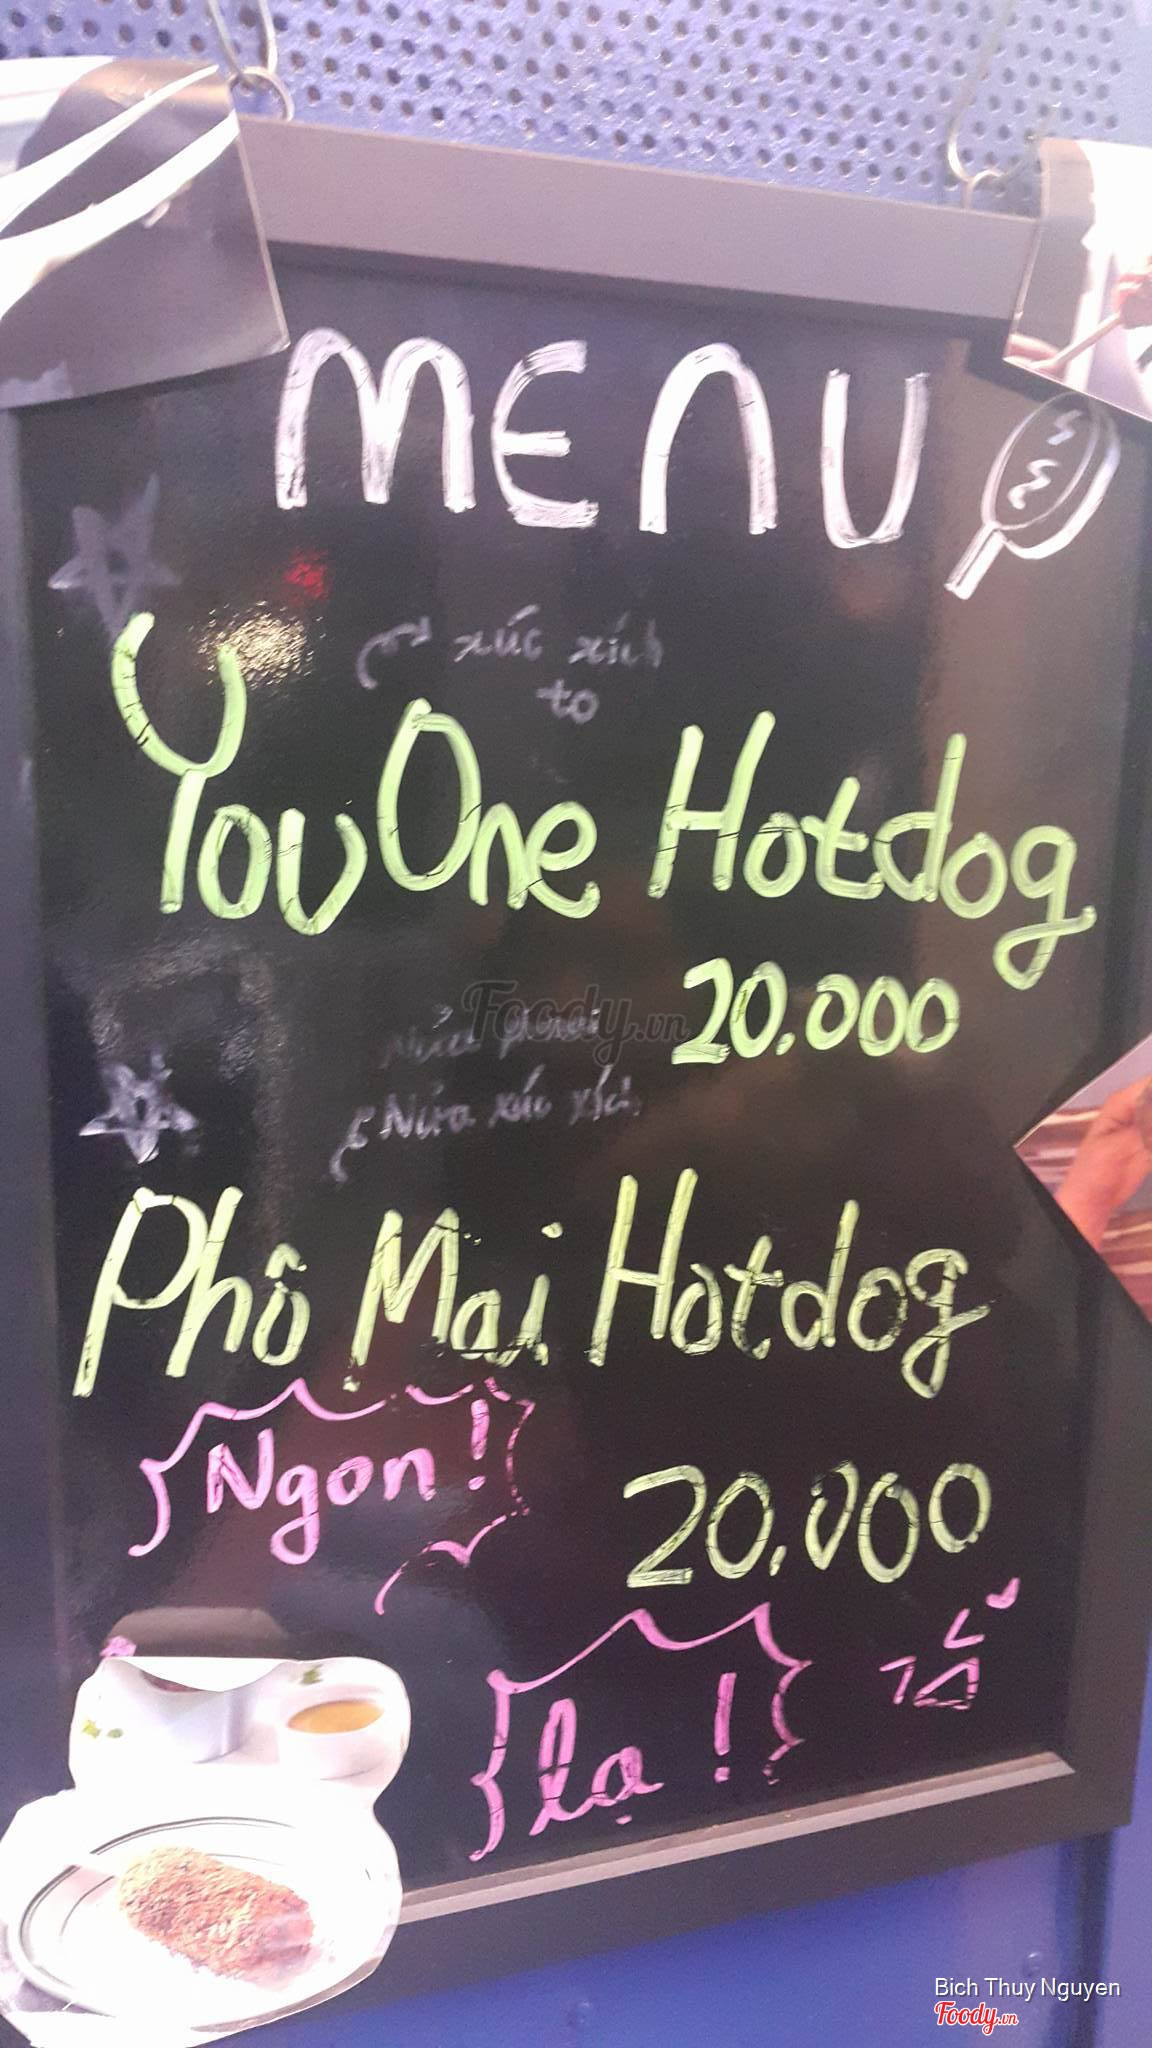 MENU
xúc xích
to
You One Hotdog
20.000
Foody.vn
Nửa phomai
Nửa xúc xích
Phô Mai Hotdog
Ngon!
20.000
lạ!
Bich Thuy Nguyen
Foody.vn